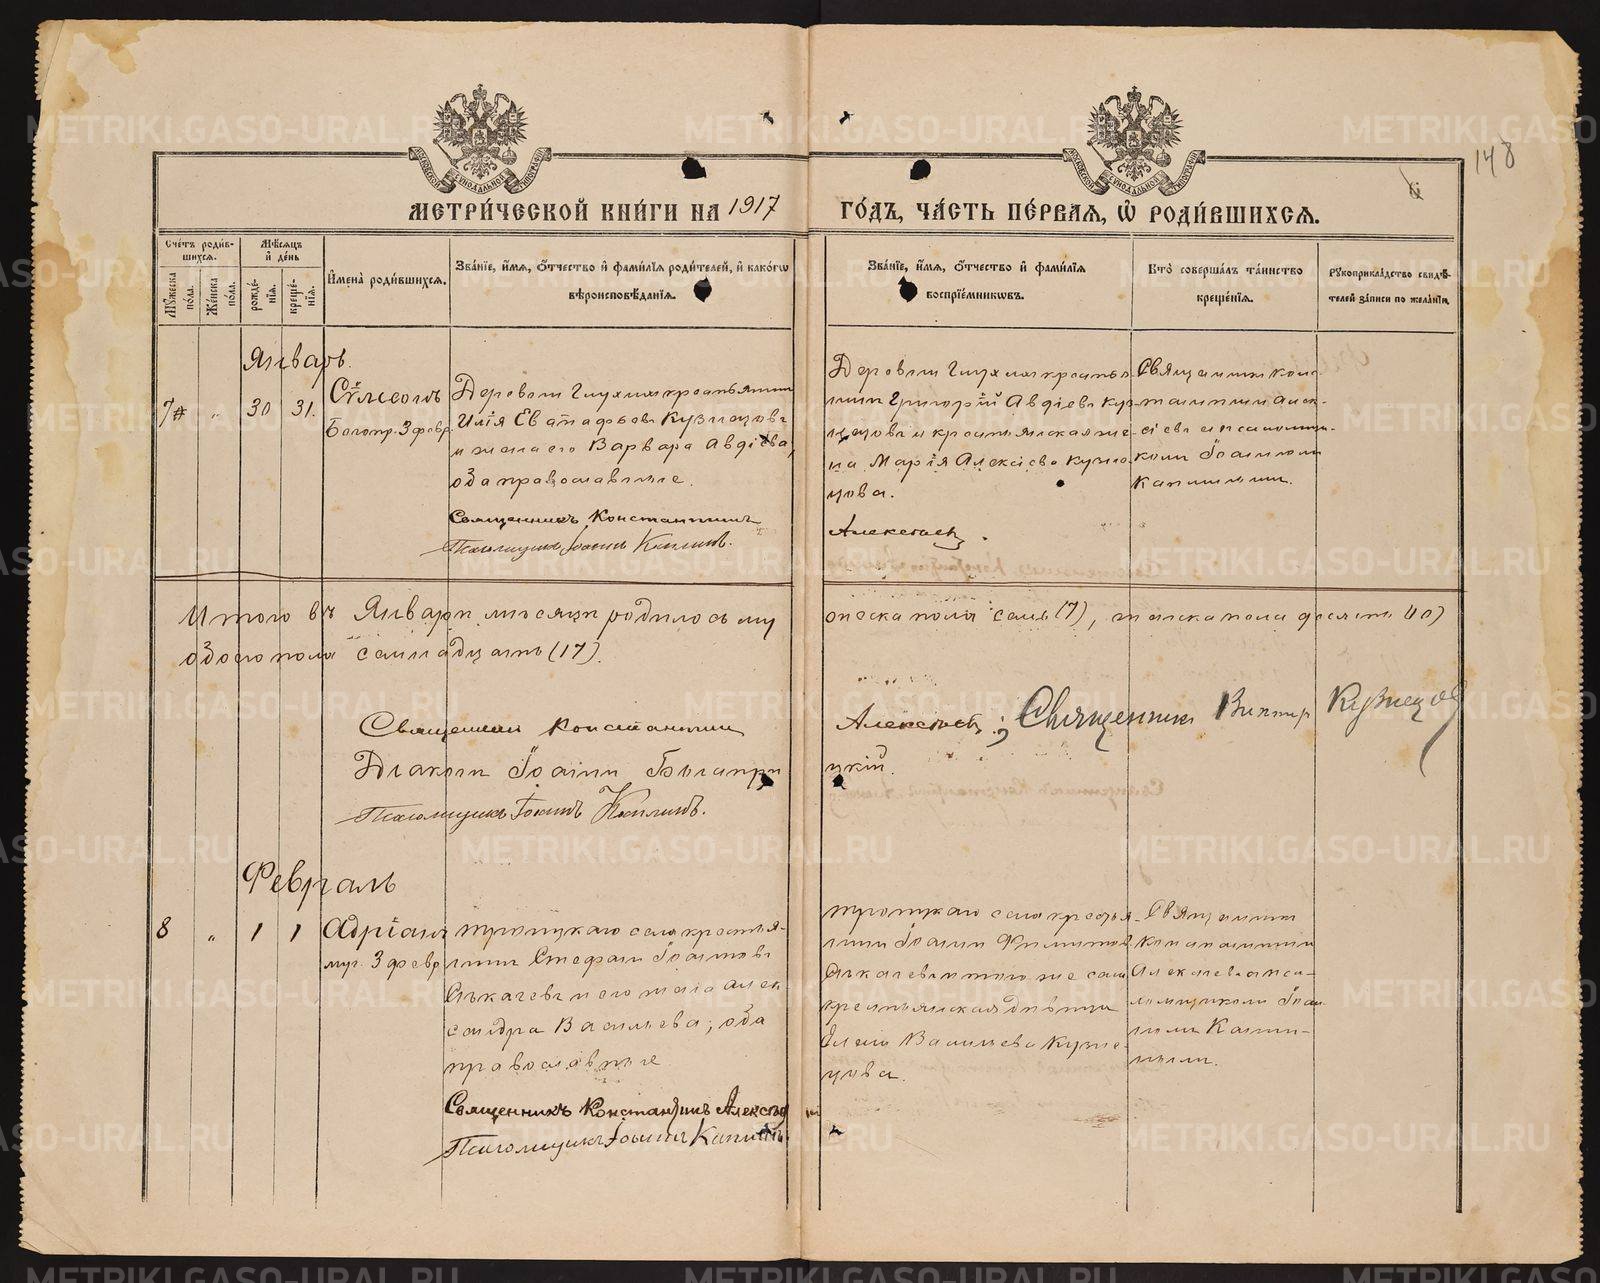 148
МЕТРИ́ЧЕСКОЙ КНИ́ГИ НА 1917
ГО́ДЪ, ЧА́СТЬ ПЕ́РВАЯ, Ѡ РОДИ́ВШИХСЯ.
Сче́тъ роди́в-
шихся.
Мѣ́сяцъ
и́ де́нь
Му́жеска по́ла.
Же́нска по́ла.
рожде́-
нія.
креще́-
нія.
И́мена̀ роди́вшихся.
Зва́ніе, и́мя, о́тчество и́ фами́лія роди́телей, и́ како́гѡ
вѣроисповѣ́данія.
Зва́ніе, и́мя, о́тчество и́ фами́лія
воспріе́мникѡвъ.
Кто̀ соверша́лъ та́инство
креще́нія.
Рукоприкла́дство свидѣ́-
телей за́писи по жела́нію.
Январь.
7 " 30 31.
Сѵмеонъ
Богопр. 3 февр.
Деревни Глухихъ крестьянинъ
Илія Евѳ Кузнецовъ
и жена его Варвара Авдіева,
оба православные.
Священникъ Константинъ
Псаломщикъ Іоаннъ Капилинъ.
Деревни Глухихъ крестья-
нинъ Григорій Авдіевъ Куз-
нецовъ и крестьянская же-
на Марія Алексіева Кузне-
цова.
Алексѣевъ.
Священникъ Конс-
тантинъ Алек-
сіевъ и псаломщи-
комъ Іоанномъ
Итого въ Январѣ мѣсяцѣ родилось му
жеска пола семь (7), женска пола десять (10)
обоего пола семнадцать (17).
Священникъ Константинъ
Алексѣевъ; Священникъ Викторъ Кузнецовъ
Діаконъ Іоаннъ Бѣлопри
цкій.
Псаломщикъ Іоаннъ Капилинъ.
Февраль
8 " 1 1
Адріанъ
муч. 3 февр
Троицкаго села крестья-
нинъ Стефанъ Іоанновъ
и его жена Алек
сандра Васильева; оба
православные
Священникъ Константинъ Алексѣев
Псаломщикъ Іоаннъ Капилинъ
Троицкаго села крестья-
нинъ Іоаннъ Филиппов
и того же села
крестьянская дѣвица
Елена Васильева Кузне-
цова.
Священникъ
Константинъ
Алексіевъ и пса-
ломщикомъ Іоан-
METRIKI.GASO-URAL.RU